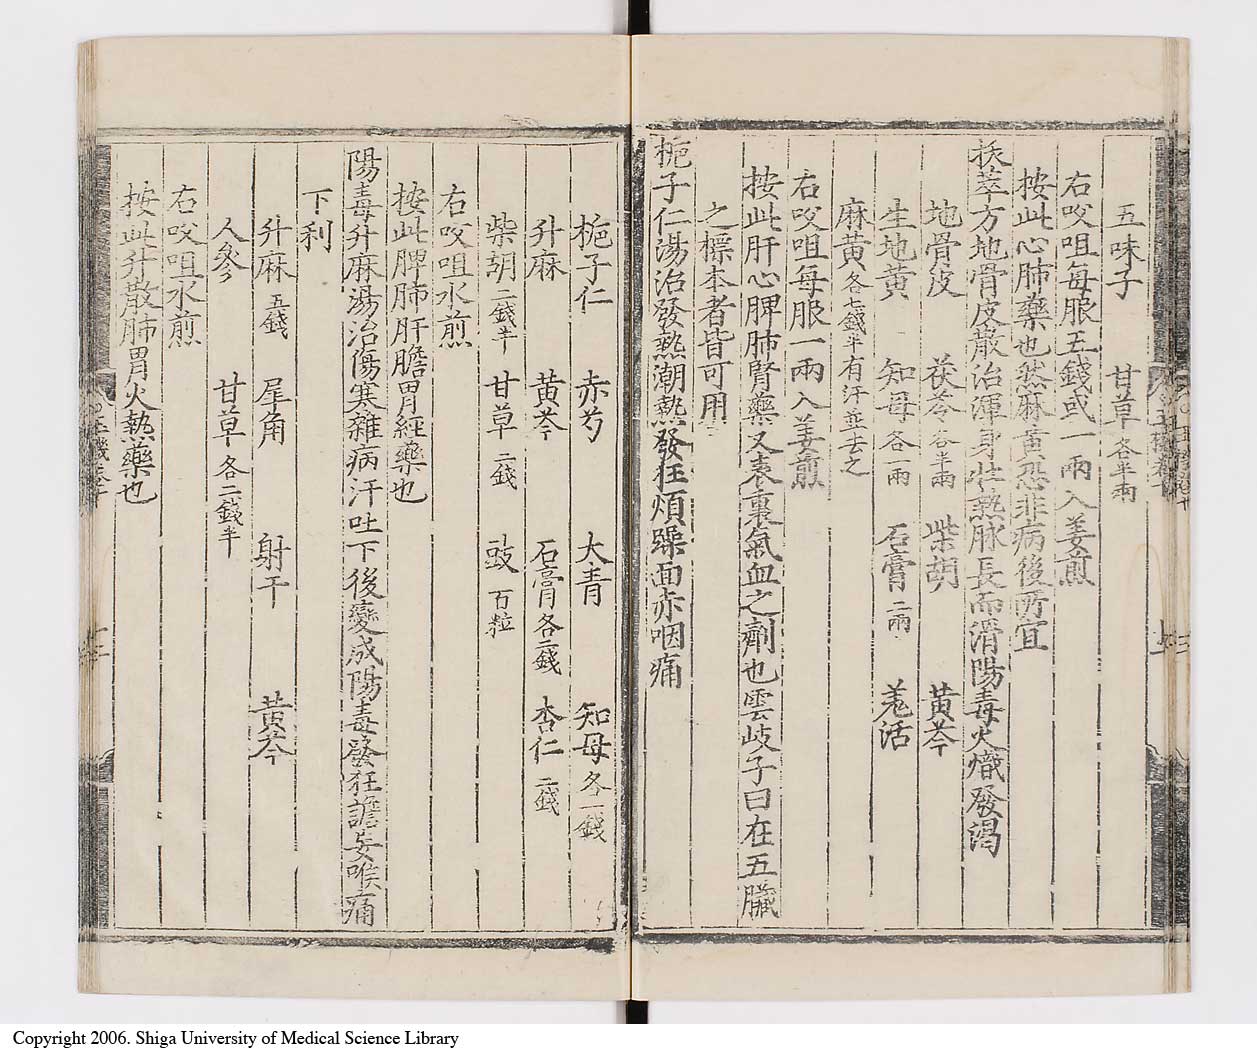 五味子 甘草各半兩
右㕮咀每服五錢或一兩入姜煎
按此心肺藥也然麻黃恐非病後所宜
拔萃方地骨皮散治渾身壯熱脉長而滑陽毒火熾發渴
地骨皮 茯苓各半兩 柴胡 黃芩
生地黃 知母各一兩 石膏二兩 羗活
麻黃各七錢半有汗並去之
右㕮咀每服一兩入姜煎
按此肝心脾肺腎藥又表裏氣血之劑也雲岐子曰在五臟
之標本者皆可用
梔子仁湯治發熱潮熱發狂煩躁面赤咽痛
梔子仁 赤芍 大青 知母各一錢
升麻 黃芩 石膏各二錢 杏仁二錢
柴胡二錢半 甘草二錢 豉百粒
右㕮咀水煎
按此脾肺肝膽胃經藥也
陽毒升麻湯治傷寒雜病汗吐下後變成陽毒發狂譫妄喉痛
下利
升麻五錢 犀角 射干 黃芩
人參 甘草各二錢半
右㕮咀水煎
按此升散肺胃火熱藥也
Copyright 2006. Shiga University of Medical Science Library